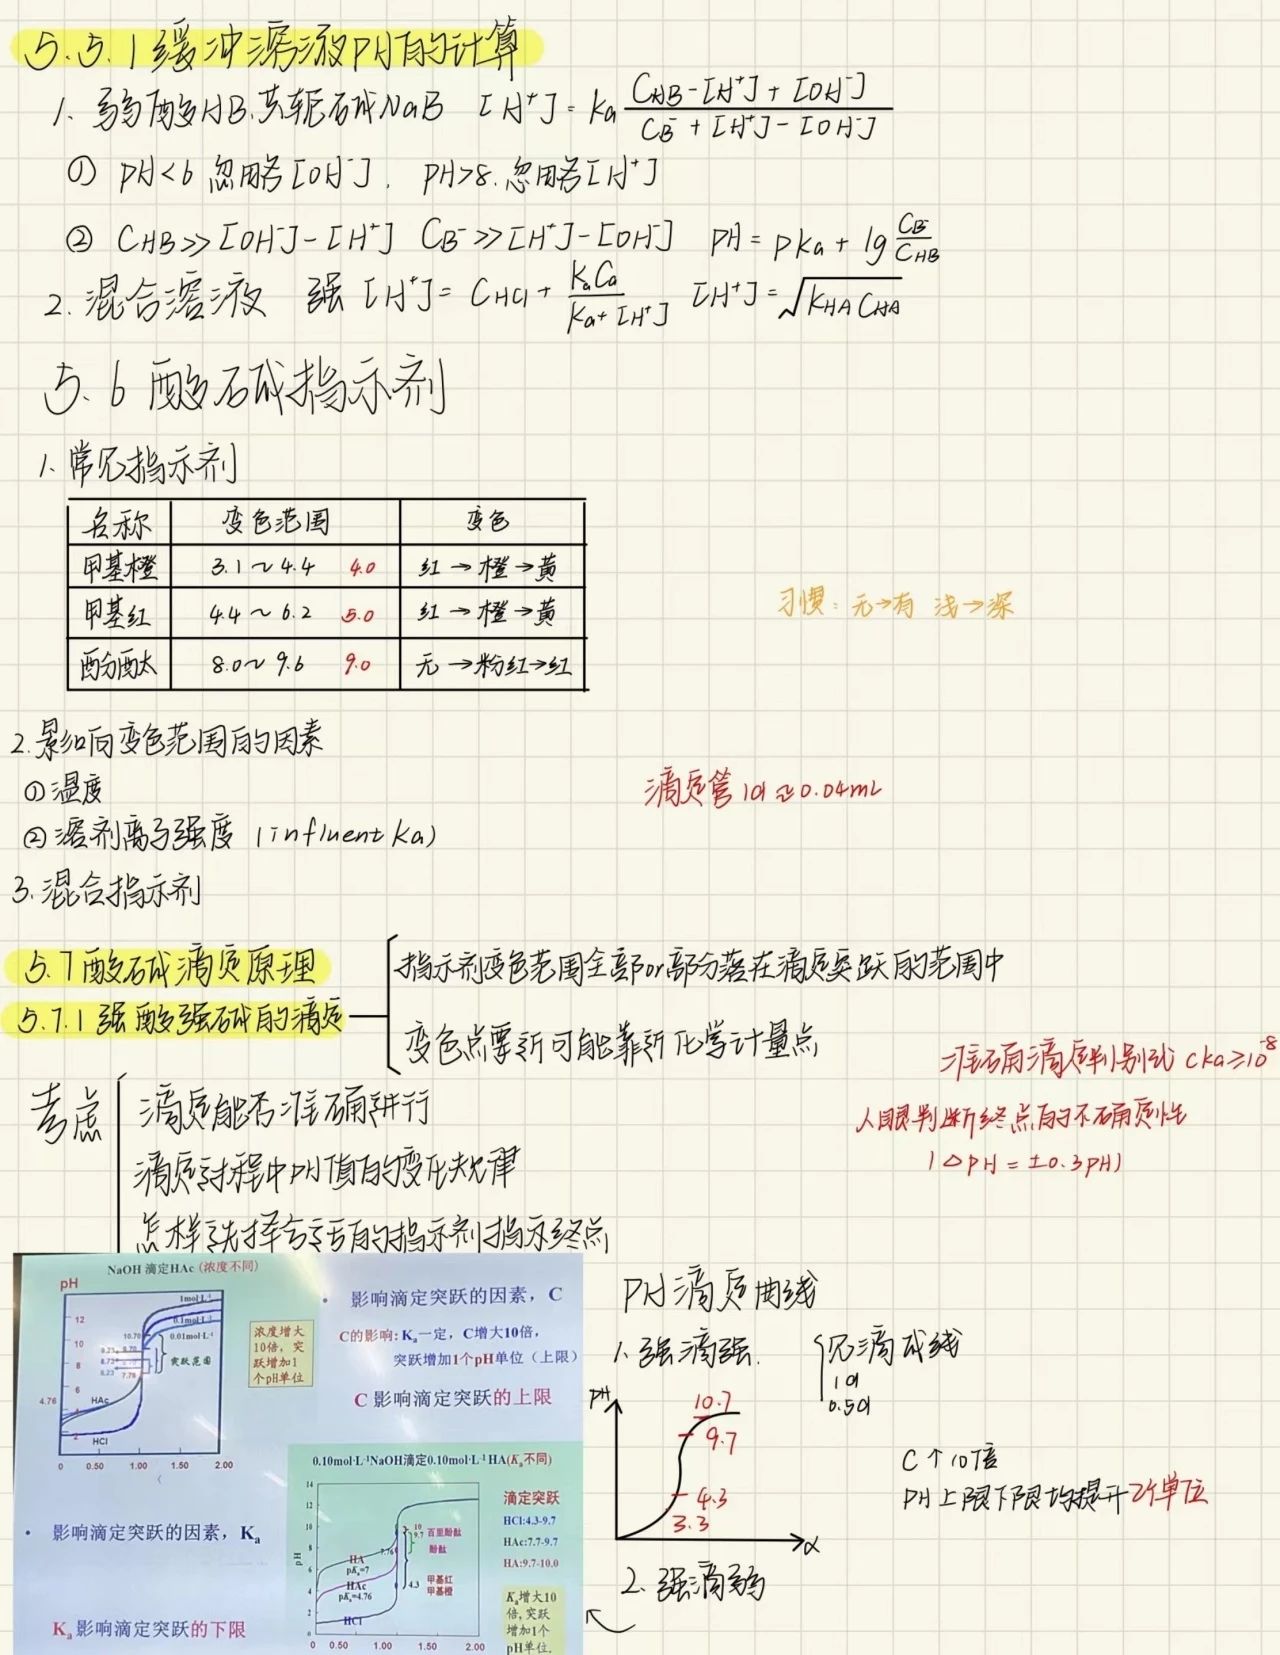 5.5.1缓冲溶液PH的计算
1. 弱酸HB.共轭碱NaB [H⁺]=Ka (C_HB-[H⁺]+[OH⁻])/(C_B⁻+[H⁺]-[OH⁻])
① PH<6 忽略[OH⁻]. PH>8.忽略[H⁺]
② C_HB>>[OH⁻]-[H⁺] C_B⁻>>[H⁺]-[OH⁻] PH=Pka+lg C_B⁻/C_HB
2.混合溶液 强 [H⁺]=C_HCl+ KaCa/(Ka+[H⁺]) [H⁺]=√(K_HA C_HA)
5.6 酸碱指示剂
1.常见指示剂
名称 变色范围 变色
甲基橙 3.1~4.4 4.0 红→橙→黄
甲基红 4.4~6.2 5.0 红→橙→黄
酚酞 8.0~9.6 9.0 无→粉红→红
习惯:无→有 浅→深
2.影响变色范围的因素
①温度
滴定管 1d≈0.04mL
②溶剂离子强度 (influent Ka)
3.混合指示剂
5.7酸碱滴定原理
5.7.1强酸强碱的滴定
指示剂变色范围全部or部分落在滴定突跃的范围中
变色点要近可能靠近化学计量点
准确滴定判别式 cka≥10⁻⁸
人眼判断终点的不确定性
(△PH=±0.3PH)
考虑
滴定能否准确进行
滴定过程中PH值的变化规律
怎样选择合适的指示剂指示终点
NaOH 滴定HAc (浓度不同)
pH
1mol·L⁻¹
0.1mol·L⁻¹
0.01mol·L⁻¹
突跃范围
12
10
8
6
4.76
2
10.70
9.70
8.73
8.23
7.76
HAc
HCl
0 0.50 1.00 1.50 2.00
浓度增大
10倍,突
跃增加1
个pH单位
· 影响滴定突跃的因素,C
C的影响:Kₐ一定,C增大10倍,
突跃增加1个pH单位(上限)
C 影响滴定突跃的上限
· 影响滴定突跃的因素,Kₐ
Kₐ影响滴定突跃的下限
0.10mol·L⁻¹NaOH滴定0.10mol·L⁻¹HA(Kₐ不同)
pH
14
12
10
8
6
4
2
0 0.50 1.00 1.50 2.00
HA
pKₐ=7
HAc
pKₐ=4.76
HCl
10
9.7
7.76
4.3
百里酚酞
酚酞
甲基红
甲基橙
滴定突跃
HCl:4.3-9.7
HAc:7.7-9.7
HA:9.7-10.0
Kₐ增大10
倍,突跃
增加1个
pH单位.
PH滴定曲线
1.强滴强.
见滴成线
1d
0.5d
PH
10.7
9.7
4.3
3.3
α
C↑10倍
PH上限下限均提升2个单位
2.强滴弱